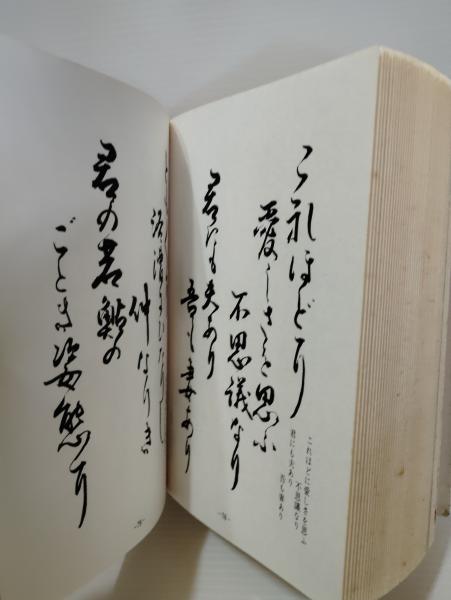 これほどに
愛しさを思ふ
不思議なり
君にも夫あり
吾も妻あり
これほどに愛しさを思ふ
不思議なり
君にも夫あり
吾も妻あり
仲なりき
君の若鮎の
ごとき姿態に